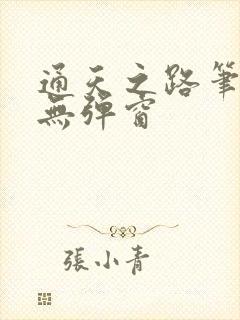 通天之路筆
無彈窗
張小青